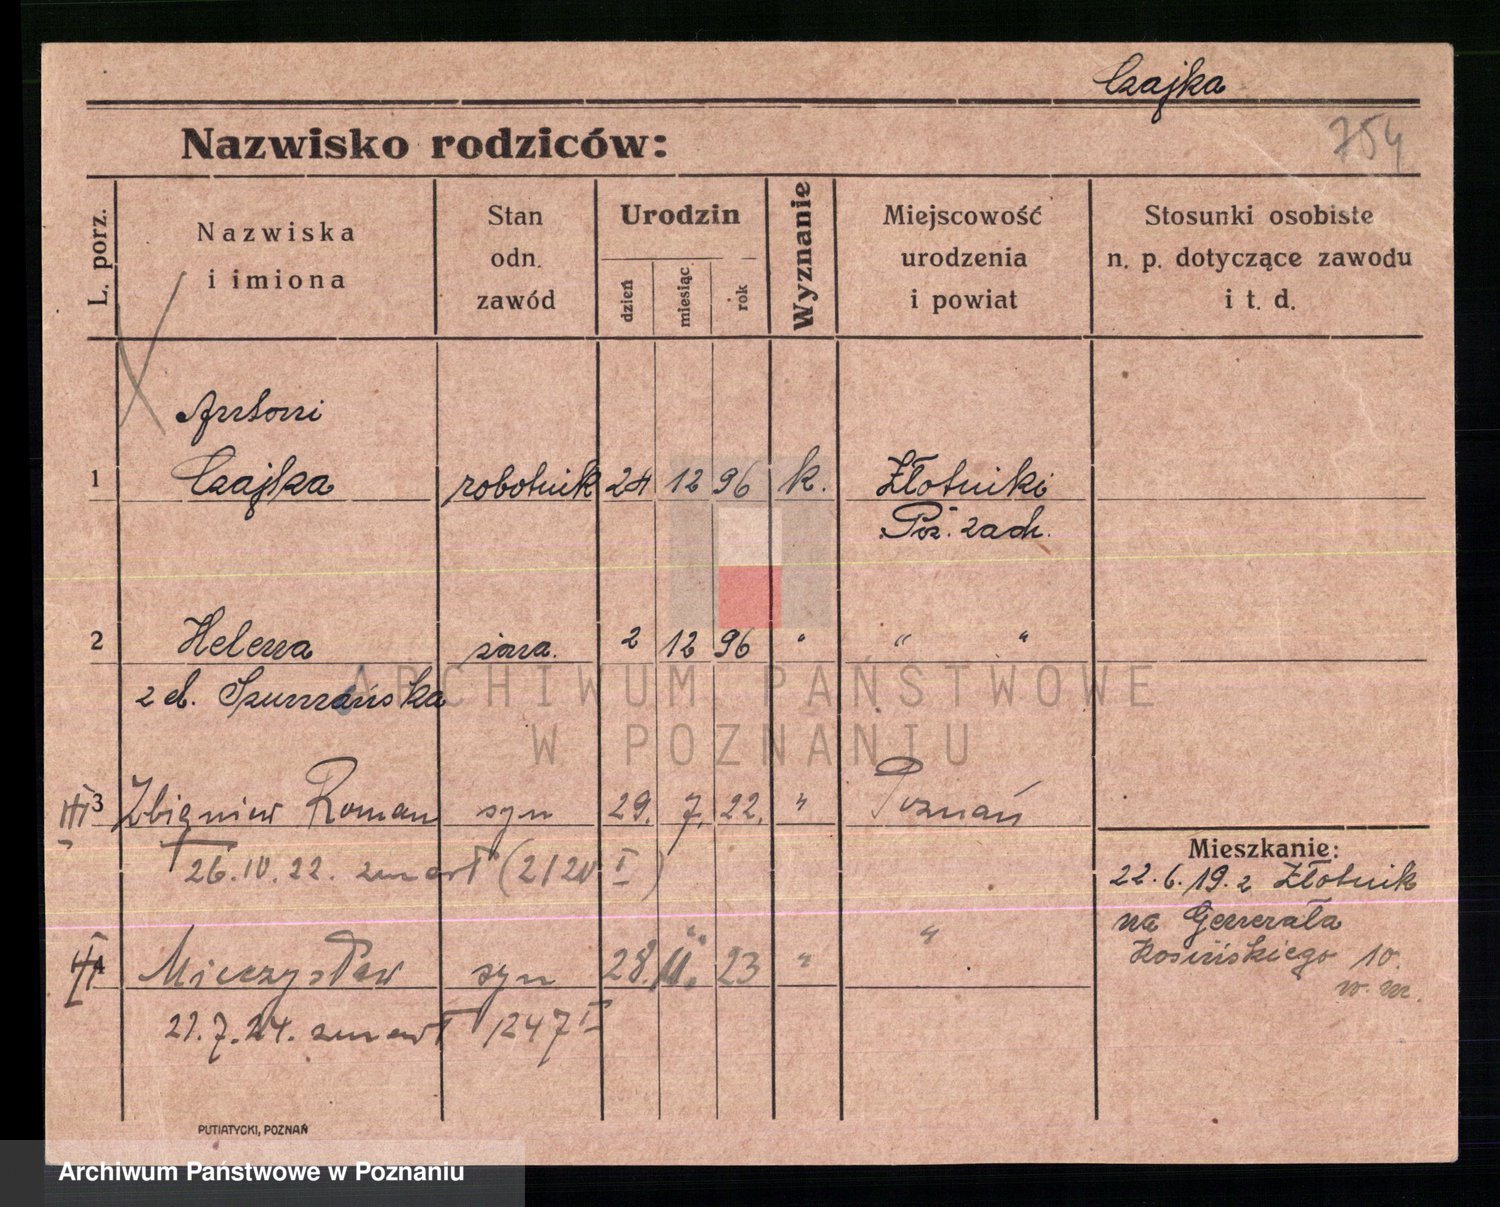 Czajka
Nazwisko rodziców:
754
L. porz.
Nazwiska
i imiona
Stan
odn.
zawód
Urodzin
dzień
miesiąc
rok
Wyznanie
Miejscowość
urodzenia
i powiat
Stosunki osobiste
n. p. dotyczące zawodu
i t. d.
Antoni
1 Czajka robotnik 24 12 96 k. Złotniki
Poz. zach.
2 Helena żona. 2 12 96 " " "
z d.
ARCHIWUM PAŃSTWOWE
W POZNANIU
3 Zbigniew Roman syn 29. 7. 22. " Poznań
26. 22. zmarł
Mieszkanie:
22.6.19. z Złotnik
na Generała
Kosińskiego 10.
4 Mieczysław syn 28. 11. 23 " "
7.24. zmarł 1247 I
PUTIATYCKI, POZNAŃ
Archiwum Państwowe w Poznaniu